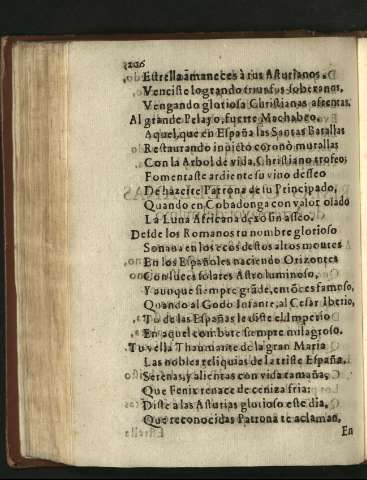 206
Estrella amaneces à tus Asturianos.
Venciste logrando triunfos soberanos,
Vengando gloriosa Christianas afrentas.
Al grande Pelayo, fuerte Machabeo,
Aquel, que en España las Santas Batallas
Restaurando inuicto coronò murallas
Con la Arbol de vida, Christiano trofeo;
Fomentaste ardiente su viuo desseo
De hazerte Patrona de su Principado,
Quando en Cobadonga con valor osado
La Luna Africana dexò sin asseo.
Desde los Romanos tu nombre glorioso
Sonaua en los ecos destos altos montes
En los Españoles naciendo Orizontes
Con luces solares Astro luminoso,
Y aunque siempre grãde, entõces famoso,
Quando al Godo Infante, al Cesar Iberio,
Tu de las Españas le diste el Imperio
En aquel combate siempre milagroso.
Tu vella Thaumante de la gran Maria
Las nobles reliquias de la triste España,
Serenas, y alientas con vida tamaña,
Que Fenix renace de ceniza fria:
Diste a las Asturias glorioso este dia,
Que reconocidas Patrona te aclaman,
En